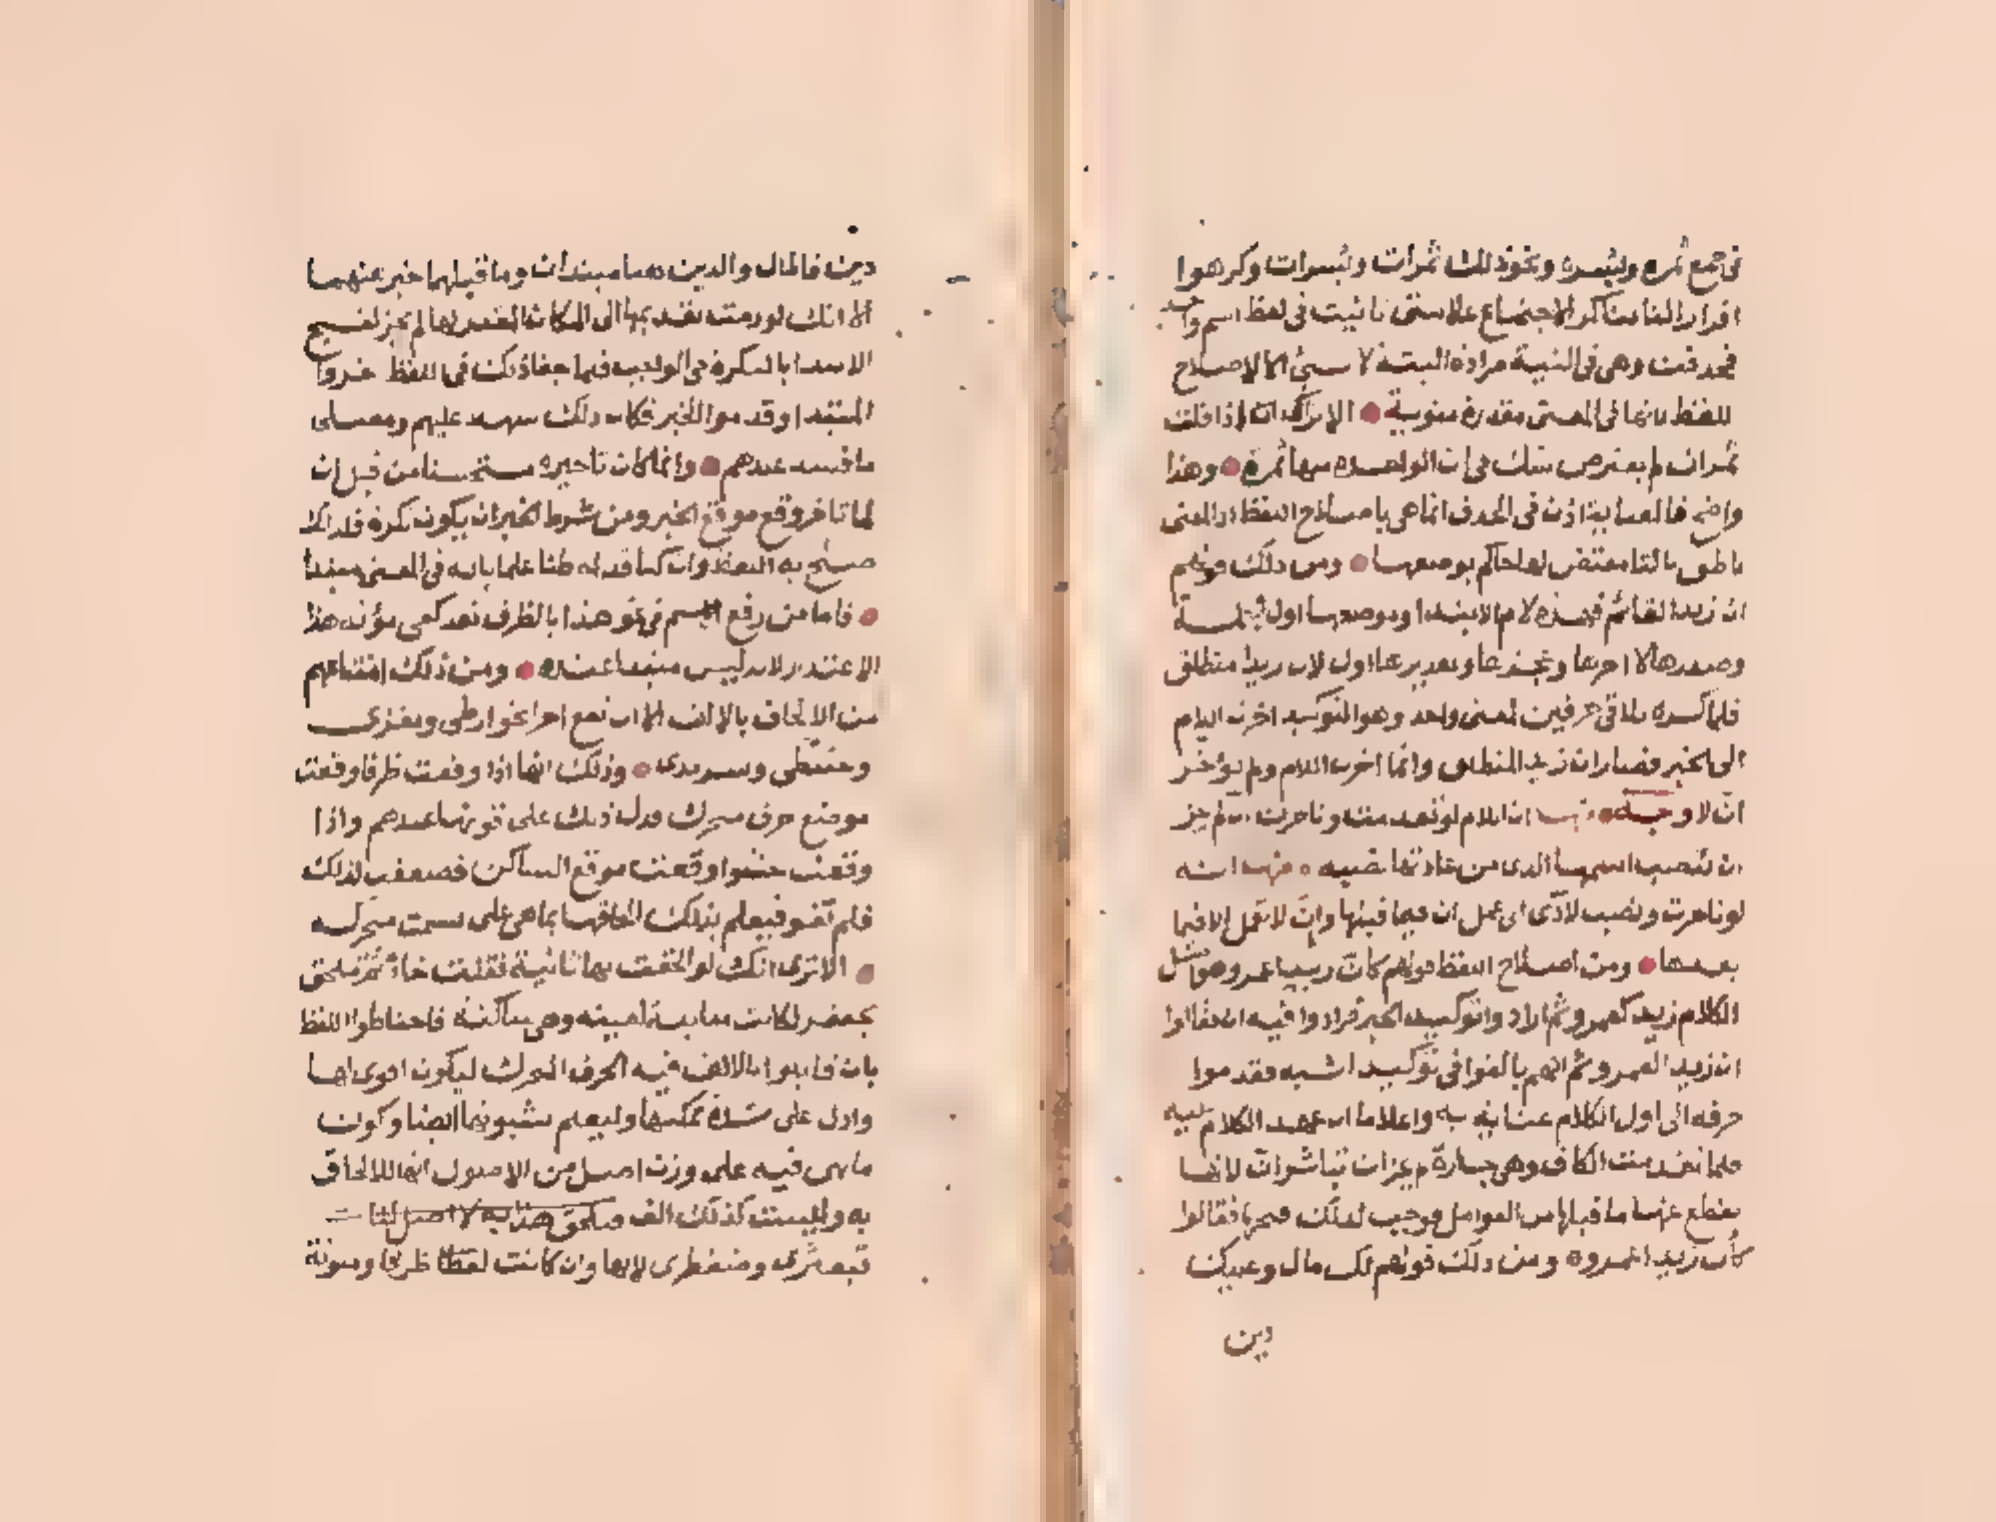 في جمع ثمرة وبسرة ونحو ذلك ثمرات وبسرات وكرهوا
اقرار التا تناكر الاجتماع علامتى تانيث فى لفظ اسم واحد
فحذفت وهى فى النية مرادة البتة لا لشئ الا لاصلاح
للفظ لانها فى المعنى مقدرة منوية الا ترى انك اذا قلت
ثمرات لم يعترض شك فى ان الواحدة منها ثمرة وهذا
واضح فالعناية اذن فى الحذف انما هى باصلاح اللفظ اذ المعنى
ناطق بالتا مقتض لها حاكم بموضعها ومن ذلك قولهم
ان زيدا لقائم فهذه لام الابتدا وموضعها اول الجملة
وصدرها لا اخرها وعجزها وتقديرها اول لان زيدا منطلق
فلما كره تلاقى حرفين لمعنى واحد وهو التوكيد اخرت اللام
الى الخبر فصار ان زيدا لمنطلق وانما اخرت اللام ولم تؤخر
ان لا وجه منها ان اللام لو تقدمت وتاخرت ان لم يجز
ان تنصب اسمها الذى من عادتها نصبه منها انه
لو تاخرت ونصب لادى الى عمل ان فيما قبلها وان لا تعمل الا فيما
بعدها ومن اصلاح اللفظ قولهم كان زيدا عمرو وهو مثل
الكلام زيد كعمرو ثم ارادوا توكيد الخبر فزادوا فيه ان فقالوا
ان زيدا كعمرو ثم انهم بالغوا فى توكيد الشبه فقدموا
حرفه الى اول الكلام عناية به واعلاما ان عقد الكلام عليه
فلما تقدمت الكاف وهى جارة لم يجز ان تباشر ان لانها
يقطع عنها ما قبلها من العوامل فوجب لذلك فتحها فقالوا
كأن زيدا عمرو ومن ذلك قولهم لك مال وعليك
دين
دين فالمال والدين هنا مبتدان وما قبلهما خبر عنهما
الا انك لو رمت تقديمها الى المكان المقدر لها لم يجز لقبح
الابتدا بالنكرة فى الواجب فلما جفا ذلك فى اللفظ اخروا
المبتدا وقدموا الخبر فكان ذلك سهلا عليهم ومصلحا
ما فسد عندهم وانما كان تاخيره مستحسنا من قبل ان
لما تاخر وقع موقع الخبر ومن شرط الخبر ان يكون نكرة فلذلك
صلح به اللفظ وان كنا قد احطنا علما بانه فى المعنى مبتدا
فاما من رفع الاسم فى نحو هذا بالظرف فقد كفى مؤنة هذا
الاعتذار لانه ليس مبتدا عنده ومن ذلك امتناعهم
من الالحاق بالالف الا ان تقع اخرا نحو ارطى ومعزى
وحبنطى وسرندى وذلك انها اذا وقعت طرفا وقعت
موضع حرف متحرك فدل ذلك على قوتها عندهم واذا
وقعت حشوا وقعت موقع الساكن فضعفت لذلك
فلم تقو فيعلم بذلك الحاقها بما هى على سمت متحركه
الا ترى انك لو الحقت بها ثانية فقلت خاتم ملحق
بجعفر لكانت مقابلة لعينه وهى ساكنة فاحتاطوا للفظ
بان قابلوا بالالف فيه الحرف المتحرك ليكون اقوى لها
وادل على شدة تمكنها وليعلم بثبوتها ايضا وكون
ما هى فيه على وزن اصل من الاصول انها للالحاق
به وليست كذلك الف
قبعثرى وضبغطرى لانها وان كانت لفظا طرفا ومنونة